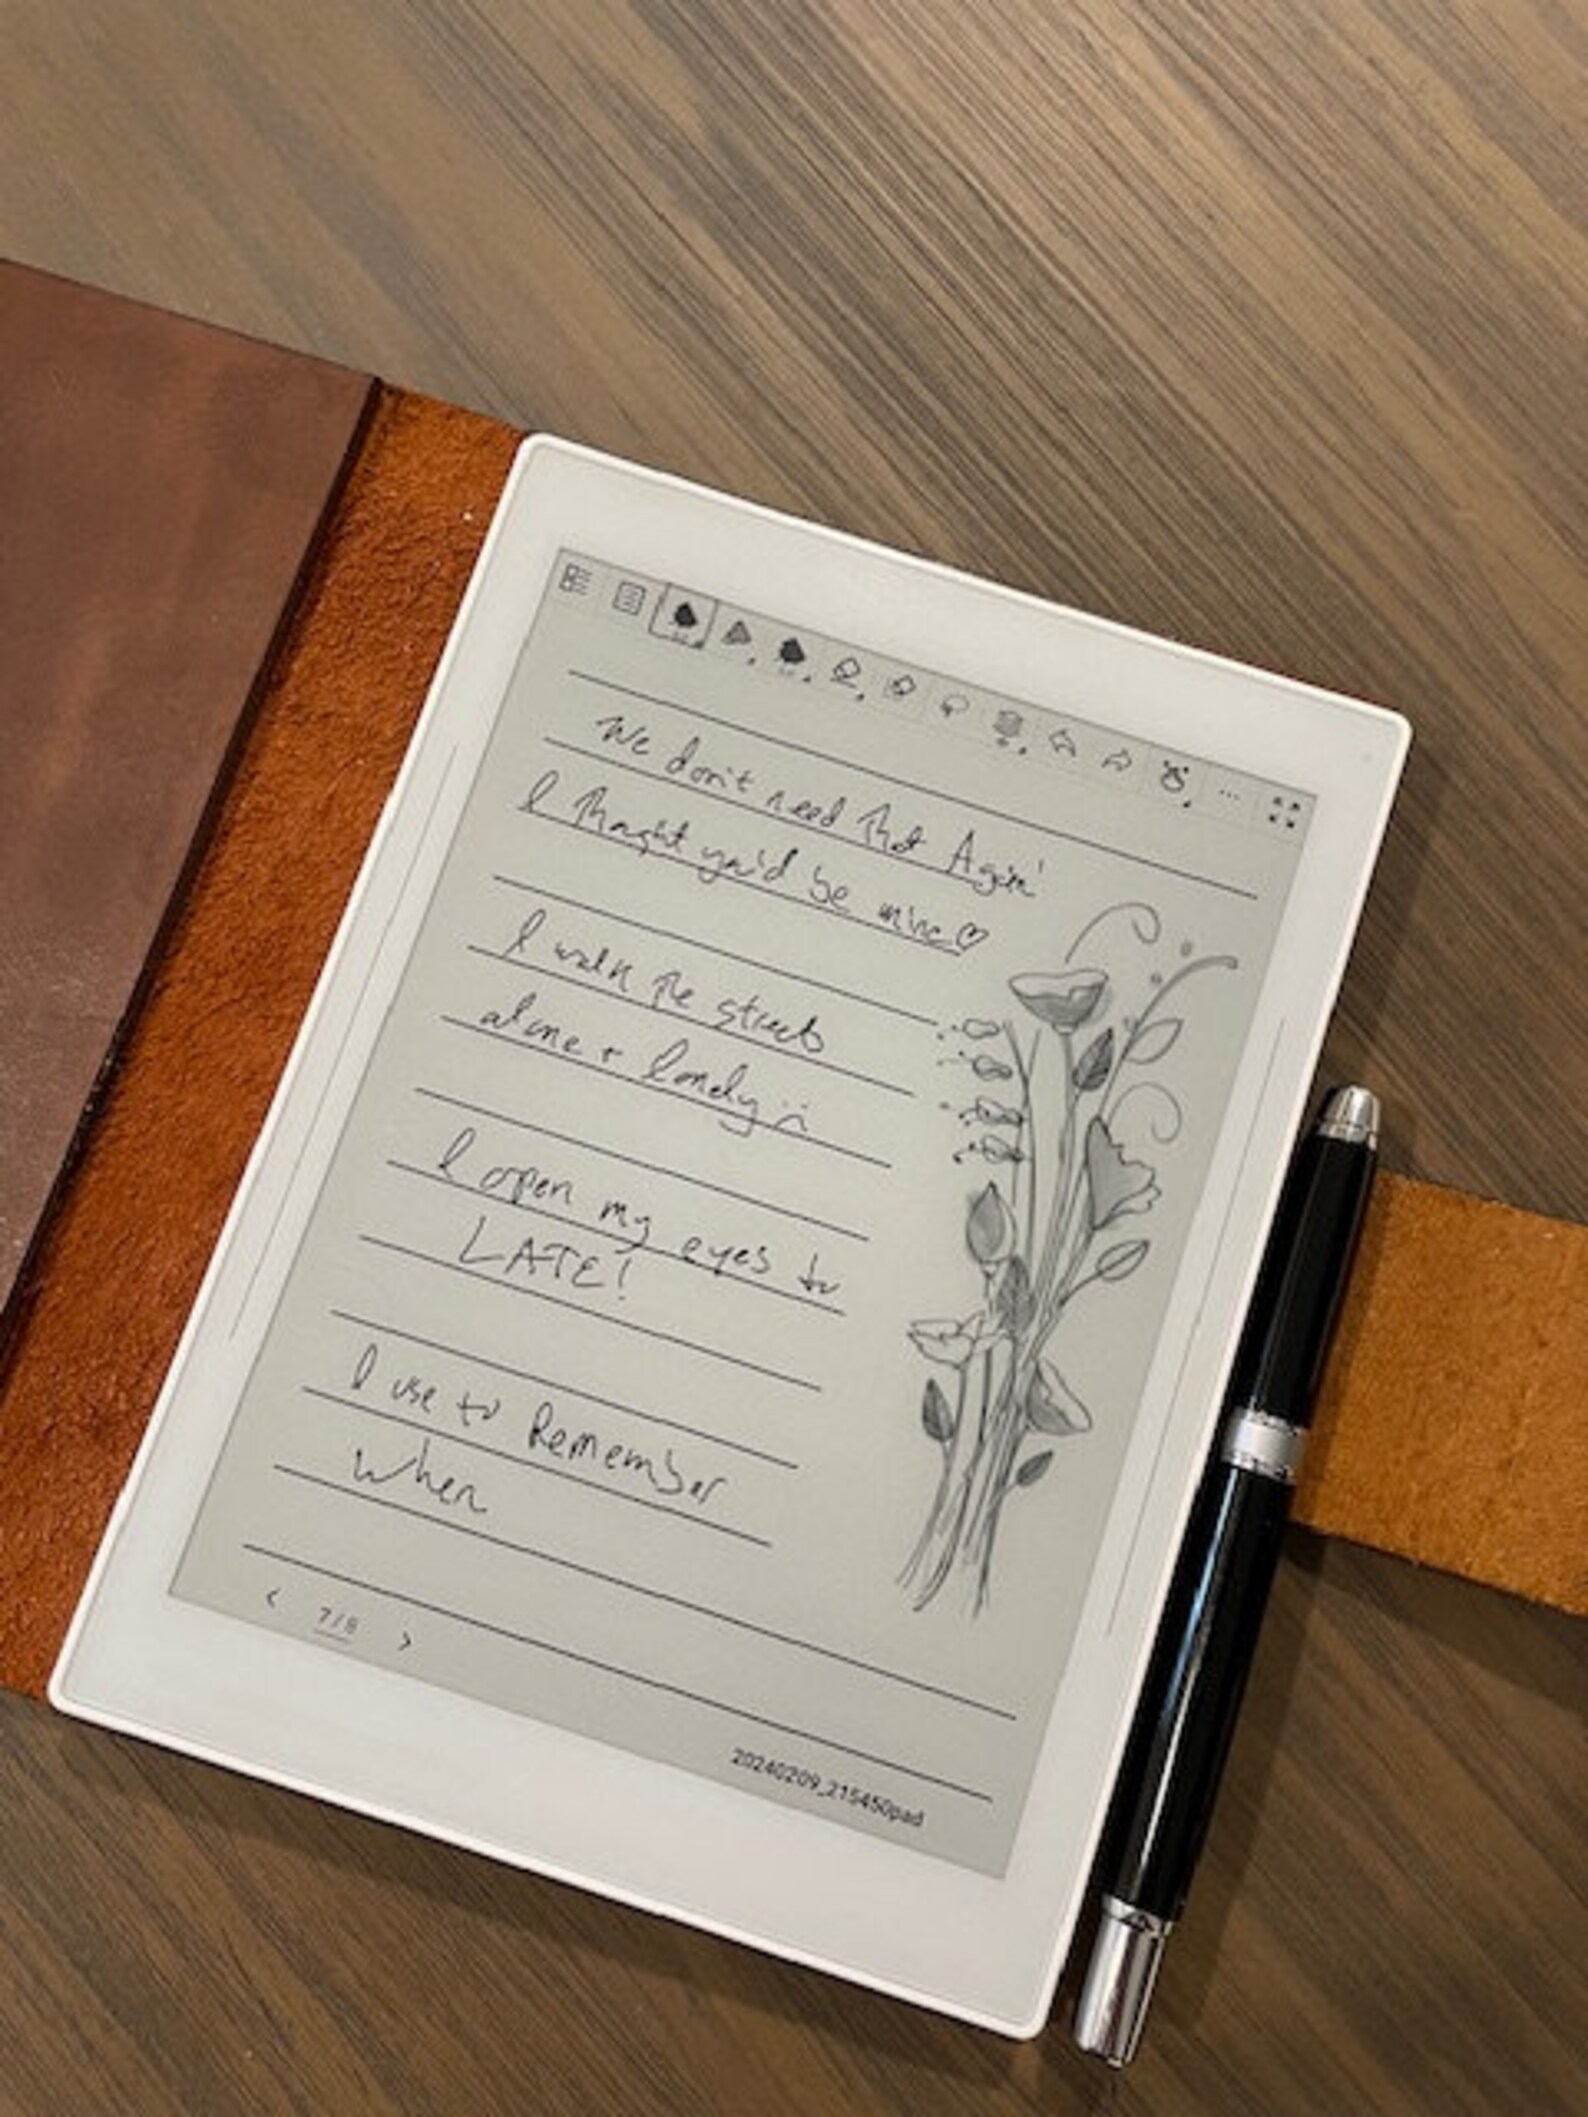 We don't need that Again'
I thought you'd be mine ♡
I walk the streets
alone + lonely :(
I open my eyes to
LATE!
I use to Remember
when
< 7/8 >
20240209_215450pad